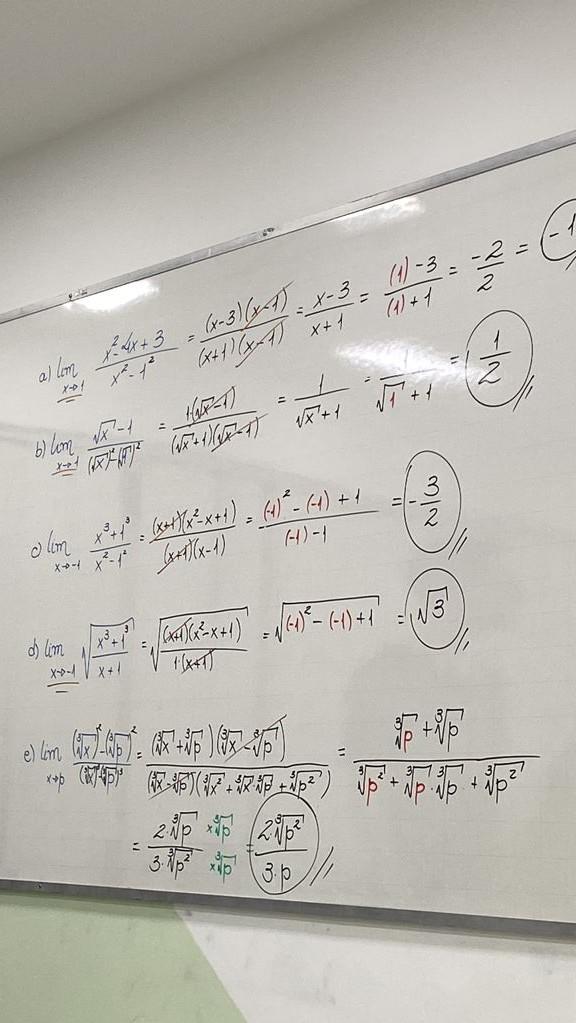 a) lim x→1 (x²-4x+3)/(x²-1²) = ((x-3)(x-1))/((x+1)(x-1)) = (x-3)/(x+1) = ((1)-3)/((1)+1) = -2/2 = -1
b) lim x→1 (√x-1)/((√x)²-(√1)²) = (1·(√x-1))/((√x+1)(√x-1)) = 1/(√x+1) = 1/(√1+1) = 1/2
c) lim x→-1 (x³+1³)/(x²-1²) = ((x+1)(x²-x+1))/((x+1)(x-1)) = ((-1)²-(-1)+1)/((-1)-1) = -3/2
d) lim x→-1 √((x³+1³)/(x+1)) = √(((x+1)(x²-x+1))/(1·(x+1))) = √((-1)²-(-1)+1) = √3
e) lim x→p ((∛x)²-(∛p)²)/((∛x)³-(∛p)³) = ((∛x+∛p)(∛x-∛p))/((∛x-∛p)(∛x²+∛x·∛p+∛p²)) = (∛p+∛p)/(∛p²+∛p·∛p+∛p²)
= (2·∛p)/(3·∛p²) ×∛p/×∛p = (2·∛p²)/(3·p)